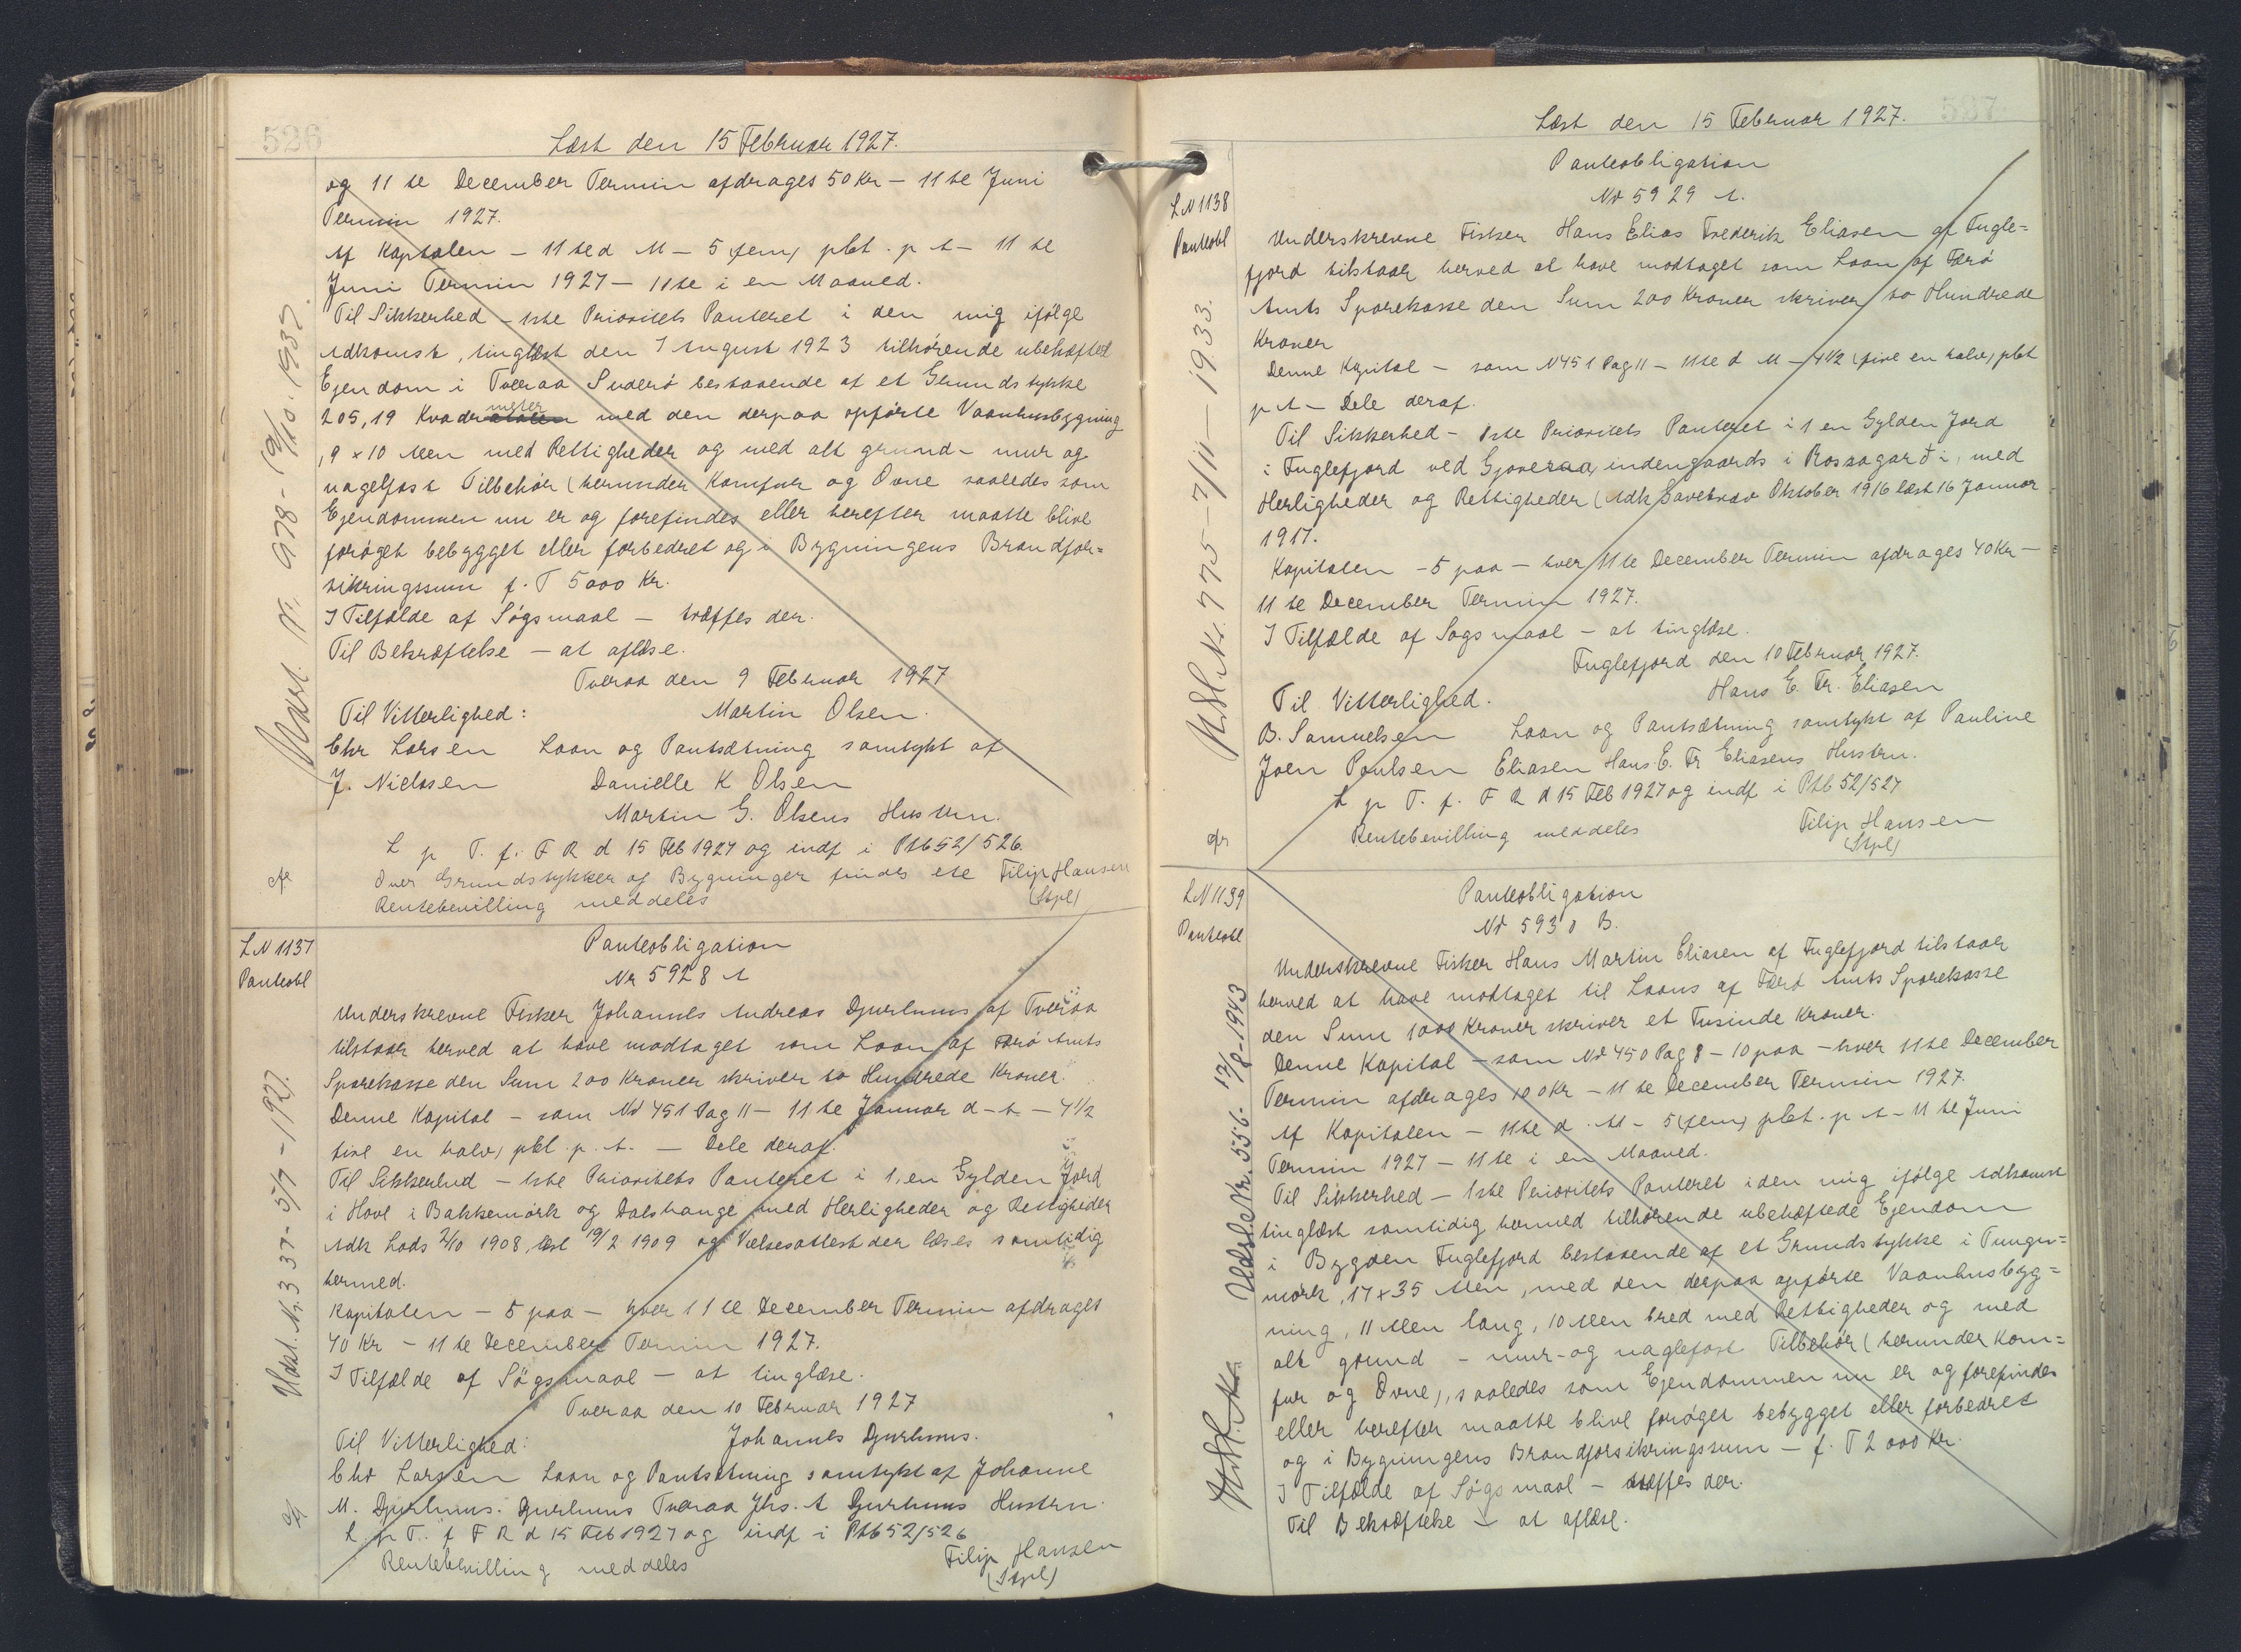 526
Læst den 15 Februar 1927.
og 11te December Termin afdrages 50 Kr – 11te Juni
Termin 1927.
Af Kapitalen – 11te d M – 5 (fem) pCt. p A – 11te
Juni Termin 1927 – 11te i en Maaned.
Til Sikkerhed – 1ste Prioritets Panteret i den mig ifølge
Adkomst, tinglæst den 7 August 1923 tilhørende ubehæftede
Ejendom i Tveraa Suderø bestaaende af et Grundstykke
205,19 Kvadratmeter med den derpaa opførte Vaaanhusbygning
, 9 x 10 Alen med Rettigheder og med alt grund- mur og
nagelfast Tilbehør (herunder Komfur og Ovne saaledes som
Ejendommen nu er og forefindes eller herefter maatte blive
forøget bebygget eller forbedret og i Bygningens Brandfor=
sikringssum f. T 5000 Kr.
I Tilfælde af Søgsmaal – træffes der.
Til Bekræftelse – at aflæse.
Tveraa den 9 Februar 1927
Til Vitterlighed: Martin Olsen.
Chr Larsen Laan og Pantsætning samtykt af
J. Nielsen Danielle K Olsen
Martin G. Olsens Hustru.
L p T. f. F R d 15 Feb 1927 og indf i Ptb 52/526.
Over Grundstykker og Bygninger findes ete Filip Hansen
Rentebevilling meddeles (Stpl)
Udsl. Nr. 978 - 19/10 - 1937.
L N 1137
Panteobl
Panteobligation
Nr 5928 A
Underskrevne Fisker Johannes Andreas Djurhuus af Tveraa
tilstaar herved at have modtaget som Laan af Færø Amts
Sparekasse den Sum 200 Kroner skriver to Hundrede Kroner.
Denne Kapital – som Nr 451 Pag 11 – 11te Januar d – A – 4 1/2
fire en halv) pCt. p. A. – Dele deraf.
Til Sikkerhed – 1ste Prioritets Panteret i 1, en Gylden Jord
i Hove i Bakkemørk og Dalshauge med Herligheder og Rettigheder
Adk Lods 2/10 1908, læst 19/2 1909 og Vielsesattest der læses samtidig
hermed.
Kapitalen – 5 paa – hver 11te December Termin afdrages
40 Kr – 11te December Termin 1927.
I Tilfælde af Søgsmaal – at tinglæse.
Tveraa den 10 Februar 1927
Til Vitterlighed: Johannes Djurhuus.
Chr Larsen Laan og Pantsætning samtykt af Johanne
M. Djurhuus. Djurhuus Tveraa Jhs. A Djurhuus Hustru.
L. p T. f F R d 15 Feb 1927 og indf i Ptb 52/526
Rentebevilling meddeles Filip Hansen
(Stpl)
Udsl. Nr. 337 - 5/7 - 1927.
527
Læst den 15 Februar 1927.
L N 1138
Panteobl
Panteobligation
Nr 5929 A.
Underskrevne Fisker Hans Elias Frederik Eliasen af Fugle=
fjord tilstaar herved at have modtaget som Laan af Færø
Amts Sparekasse den Sum 200 Kroner skriver to Hundrede
Kroner
Denne Kapital – som N 451 Pag 11 – 11te d M – 4 1/2 (fire en halv) pCt
p A – Dele deraf.
Til Sikkerhed – 1ste Prioritets Panteret i 1 en Gylden Jord
i Fuglefjord ved Gjoveraa, indengaards i Rossagarði, med
Herligheder og Rettigheder (Adk Gavebrev Oktober 1916 læst 16 Januar
1917.
Kapitalen – 5 paa – hver 11te December Termin afdrages 40 Kr –
11te December Termin 1927.
I Tilfælde af Søgsmaal – at tinglæse.
Fuglefjord den 10 Februar 1927.
Til Vitterlighed. Hans E. Fr. Eliasen
B. Samuelsen Laan og Pantsætning samtykt af Pauline
Joen Poulsen Eliasen Hans E. Fr Eliasens Hustru.
L p T. f. F R d 15 Feb 1927 og indf i Ptb 52/527
Rentebevilling meddeles Filip Hansen
(Stpl)
Udsl. Nr. 775 - 7/11 - 1933.
L N 1139
Panteobl
Panteobligation
Nr 5930 B.
Underskrevne Fisker Hans Martin Eliasen af Fuglefjord tilstaar
herved at have modtaget til Laans af Færø Amts Sparekasse
den Sum 1000 Kroner skriver et Tusinde Kroner.
Denne Kapital – som Nr 450 Pag 8 – 10 paa – hver 11te December
Termin afdrages 100 Kr – 11te December Termin 1927.
Af Kapitalen – 11te d. M – 5 (fem) pCt. p A – 11te Juni
Termin 1927 – 11te i en Maaned.
Til Sikkerhed – 1ste Prioritets Panteret i den mig ifølge Adkomst
tinglæst samtidig hermed tilhørende ubehæftede Ejendom
i Bygden Fuglefjord bestaaende af et Grundstykke i Tungu=
mørk, 17 x 35 Alen, med den derpaa opførte Vaaanhusbyg=
ning, 11 Alen lang, 10 Alen bred med Rettigheder og med
alt grund – mur- og naglefast Tilbehør (herunder Kom=
fur og Ovne), saaledes som Ejendommen nu er og forefindes
eller herefter maatte blive forøget bebygget eller forbedret
og i Bygningens Brandforsikringssum – f. T 2000 Kr.
I Tilfælde af Søgsmaal – træffes der.
Til Bekræftelse – at aflæse.
Udsl. Nr. 556 - 17/8 - 1943